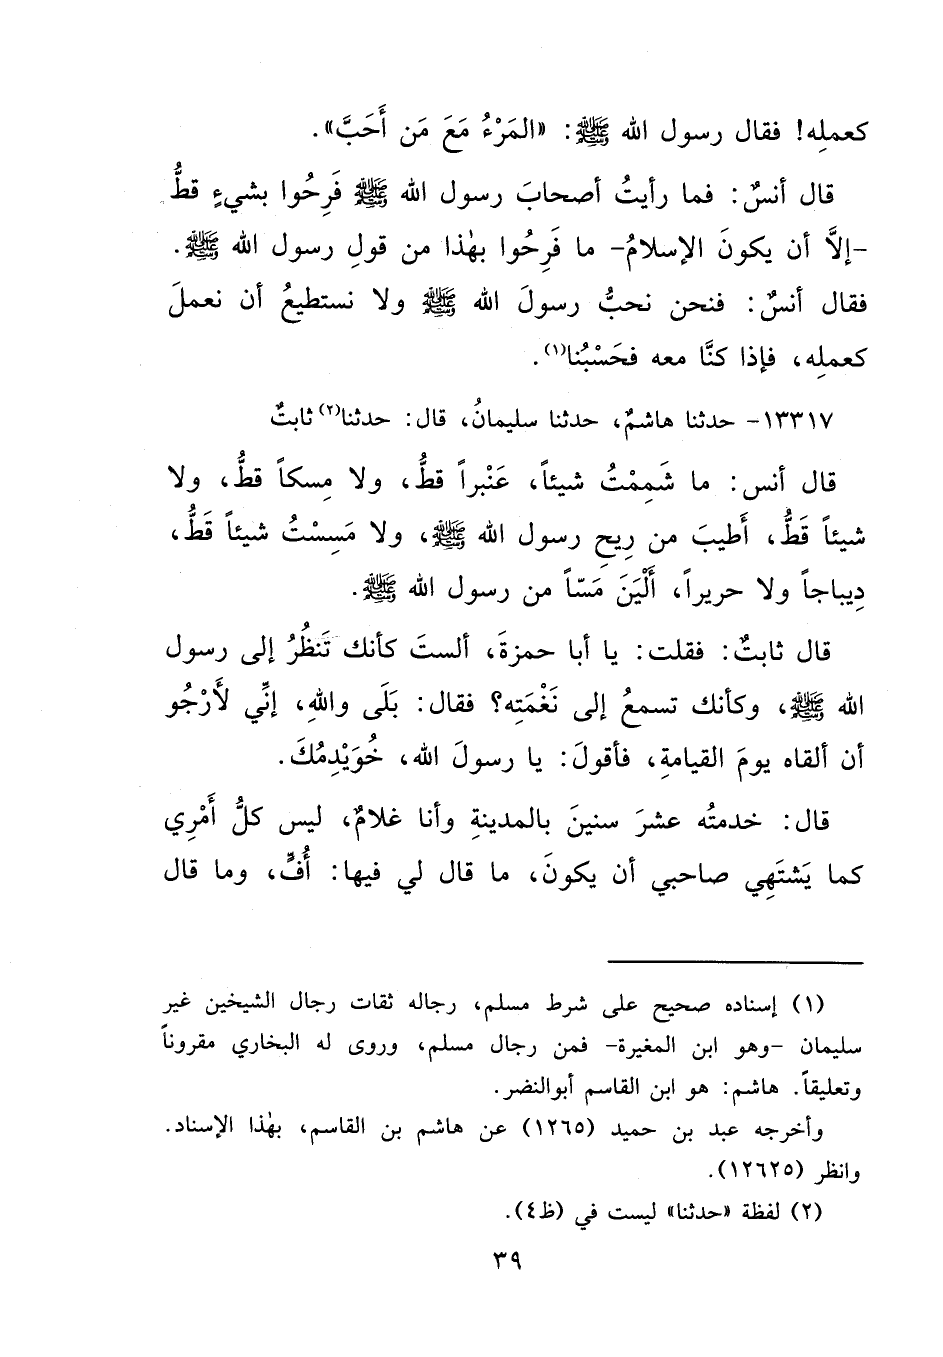 كعملِه! فقال رسول الله ﷺ: «المَرْءُ مَعَ مَن أَحَبَّ».
قال أنسٌ: فما رأيتُ أصحابَ رسول الله ﷺ فَرِحُوا بشيءٍ قطُّ
-إلَّا أن يكونَ الإسلامُ- ما فَرِحُوا بهٰذا من قولِ رسول الله ﷺ.
فقال أنسٌ: فنحن نحبُّ رسولَ الله ﷺ ولا نستطيعُ أن نعملَ
كعملِه، فإذا كنَّا معه فحَسْبُنا(١).
١٣٣١٧- حدثنا هاشمٌ، حدثنا سليمانُ، قال: حدثنا(٢) ثابتٌ
قال أنس: ما شَمِمْتُ شيئاً، عَنْبراً قطُّ، ولا مِسكاً قطُّ، ولا
شيئاً قَطُّ، أَطيبَ من رِيحِ رسول الله ﷺ، ولا مَسِسْتُ شيئاً قَطُّ،
دِيباجاً ولا حريراً، أَلْيَنَ مَسّاً من رسول الله ﷺ.
قال ثابتٌ: فقلت: يا أبا حمزةَ، ألستَ كأنك تَنظُرُ إلى رسول
الله ﷺ، وكأنك تسمعُ إلى نَغْمَتِه؟ فقال: بَلَى واللهِ، إنِّي لَأَرْجُو
أن ألقاه يومَ القيامةِ، فأقولَ: يا رسولَ الله، خُوَيْدِمُكَ.
قال: خدمتُه عشرَ سنينَ بالمدينةِ وأنا غلامٌ، ليس كلُّ أَمْرِي
كما يَشتَهِي صاحبي أن يكونَ، ما قال لي فيها: أُفٍّ، وما قال
(١) إسناده صحيح على شرط مسلم، رجاله ثقات رجال الشيخين غير
سليمان -وهو ابن المغيرة- فمن رجال مسلم، وروى له البخاري مقروناً
وتعليقاً. هاشم: هو ابن القاسم أبوالنضر.
وأخرجه عبد بن حميد (١٢٦٥) عن هاشم بن القاسم، بهٰذا الإسناد.
وانظر (١٢٦٢٥).
(٢) لفظة «حدثنا» ليست في (ظ٤).
٣٩